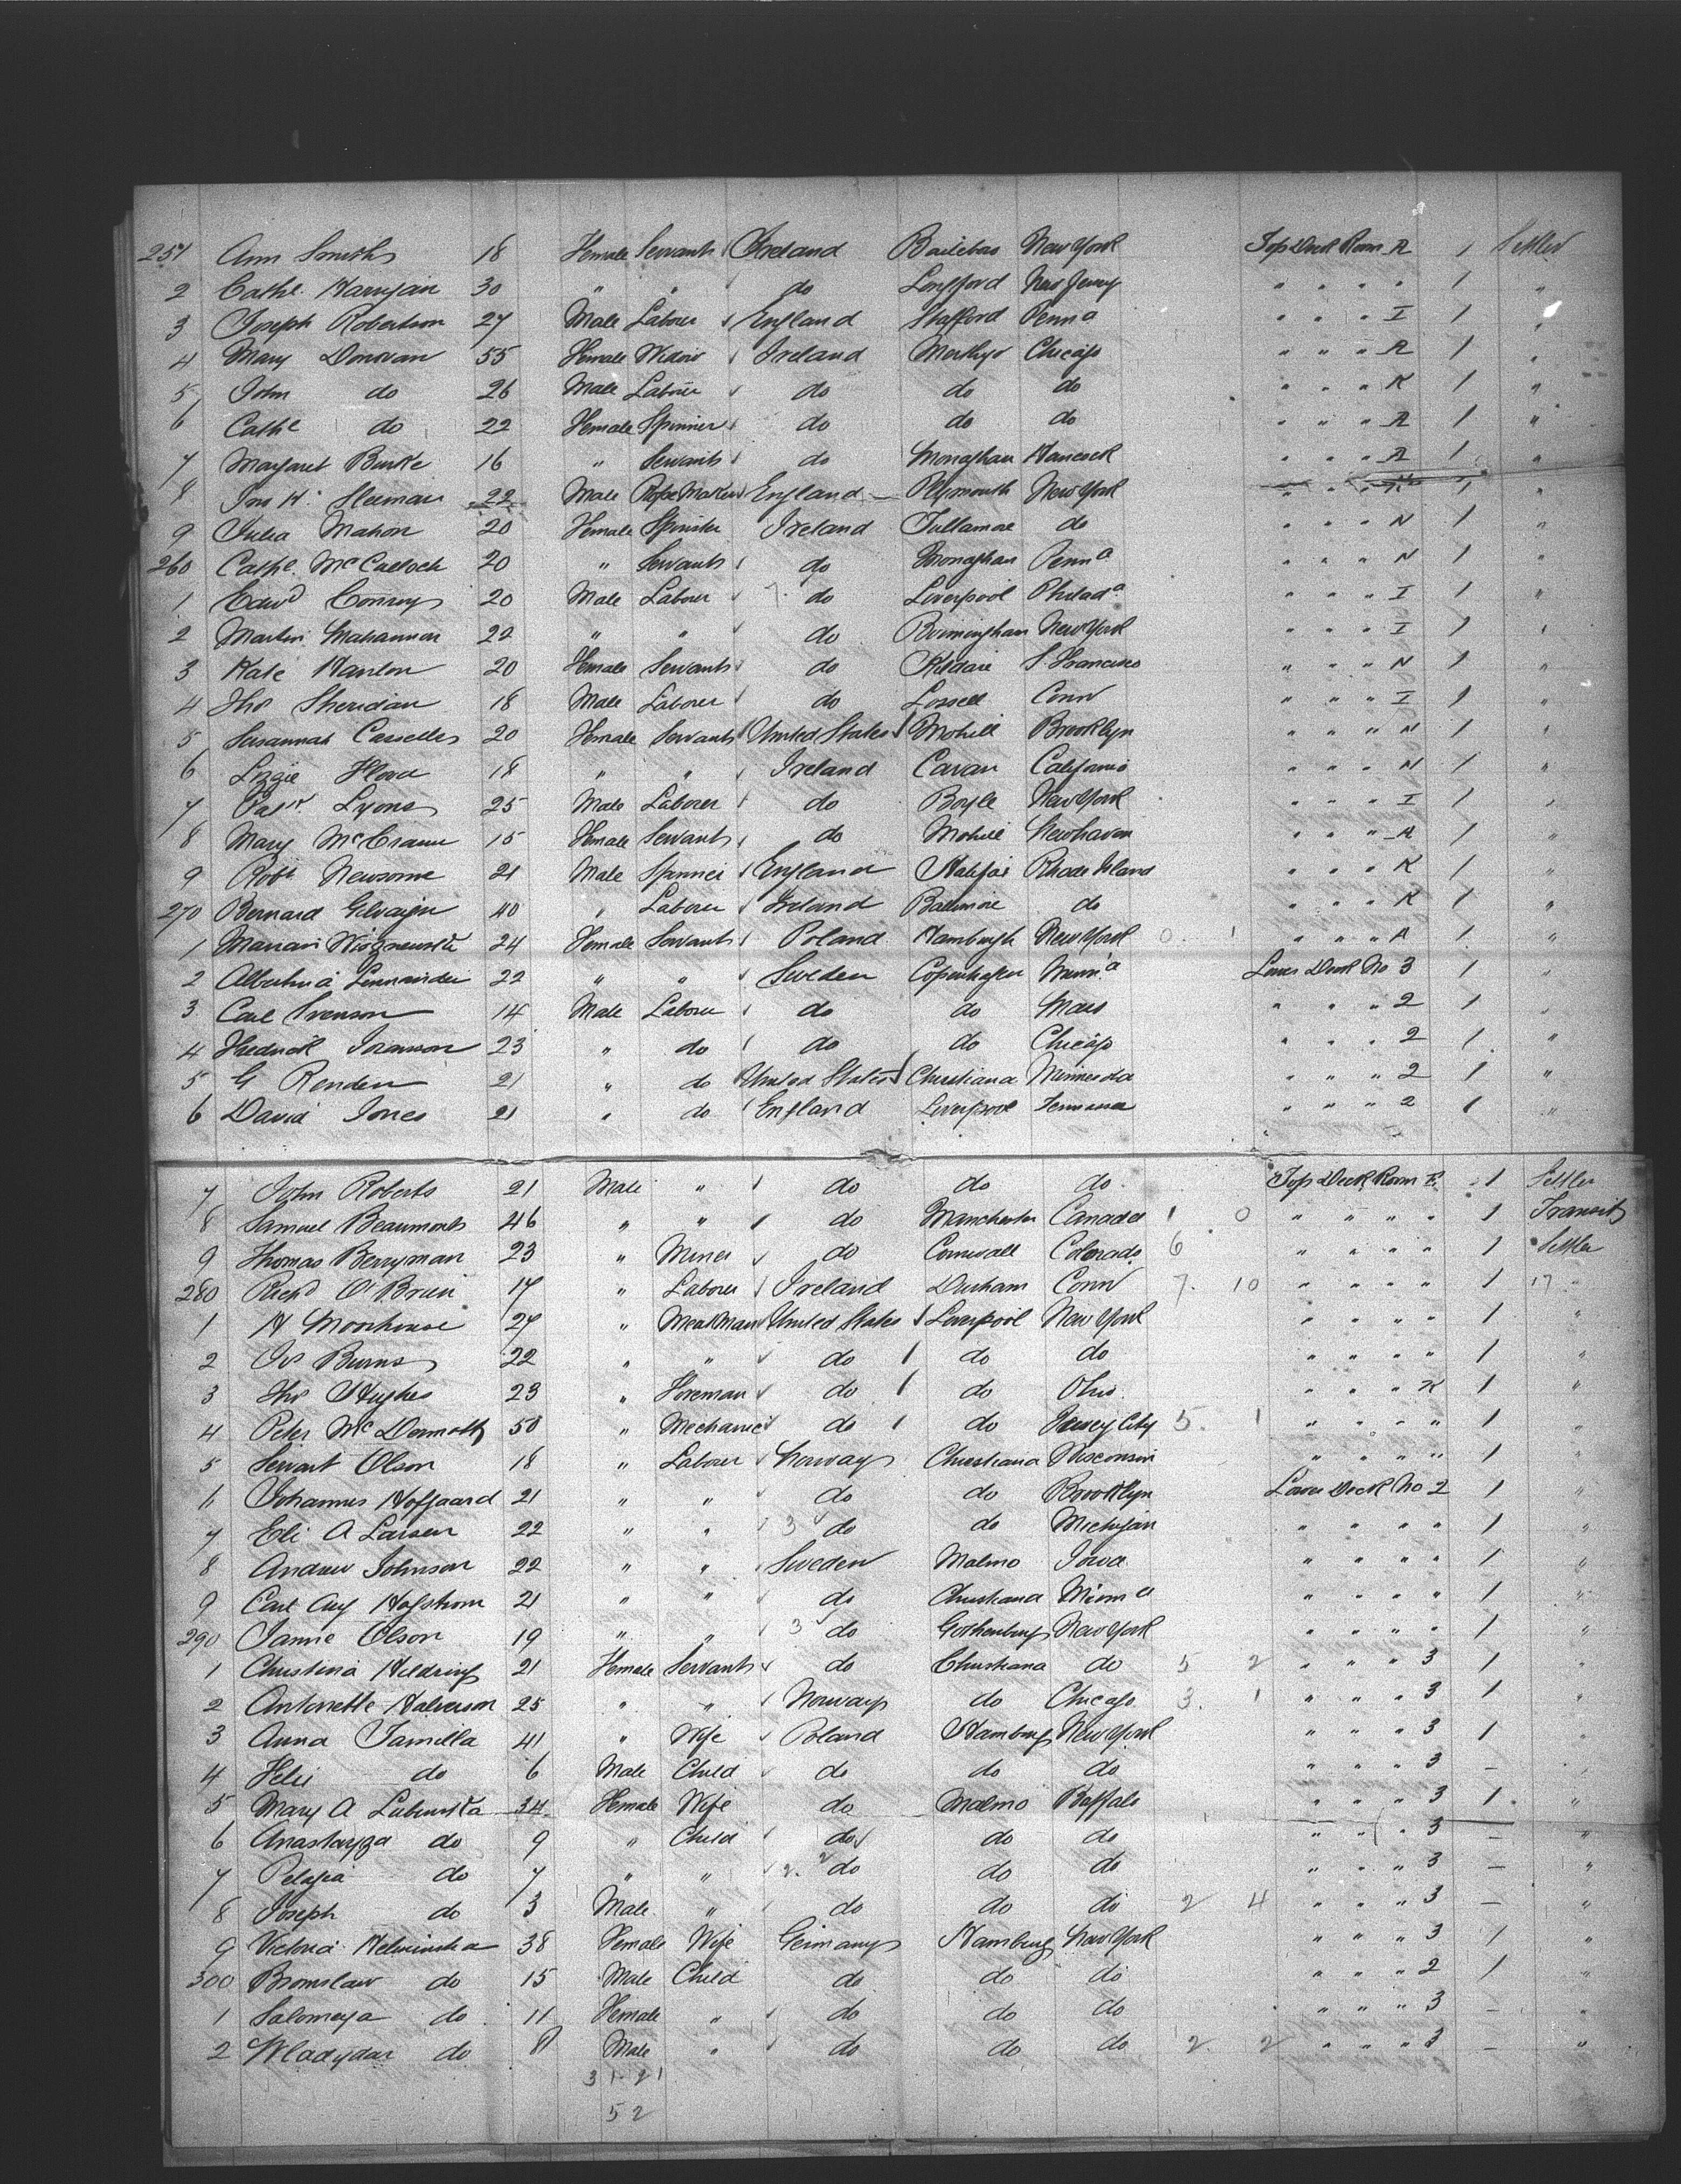 251 Ann Smith 18 Female Servant Ireland Bailebro New York Top Deck Room A 1 Settler
2 Cathe. 30 " " do Longford New Jersey " " " " 1 "
3 Joseph Robertson 27 Male Laborer England Stafford Penna " " " I 1 "
4 Mary Donovan 55 Female Widow Ireland Merthyr Chicago " " " A 1 "
5 John do 26 Male Laborer do do do " " " K 1 "
6 Cathe do 22 Female Spinner do do do " " " A 1 "
7 Margaret Burke 16 " Servant do Monaghan Hancock " " " A 1 "
8 Jno H. Sleeman 22 Male Rope Maker England Plymouth New York " " " K 1 "
9 Julia Mahon 20 Female Spinster Ireland Tullamore do " " " N 1 "
260 Cathe. McCulloch 20 " Servant do Monaghan Penna " " " N 1 "
1 Edwd Conroy 20 Male Laborer do Liverpool Philada " " " I 1 "
2 Martin 22 " " do Birmingham New York " " " I 1 "
3 Kate Hanlon 20 Female Servant do Kildare S. Francisco " " " N 1 "
4 Thos Sheridan 18 Male Laborer do Conn " " " I 1 "
5 Susannah Casselles 20 Female Servant United States Mohill Brooklyn " " " N 1 "
6 Lizzie Flood 18 " " Ireland Cavan California " " " N 1 "
7 Patk. Lyons 25 Male Laborer do Boyle New York " " " I 1 "
8 Mary McCrann 15 Female Servant do Mohill Newhaven " " " A 1 "
9 Robt Newsome 21 Male Spinner England Halifax Rhode Island " " " K 1 "
270 Bernard 40 " Laborer Ireland Baltimore do " " " K 1 "
1 24 Female Servant Poland Hamburgh New York 0. 1 " " " A 1 "
2 Albertina 22 " " Sweden Copenhagen Minn.a Lower Deck No 3 1 "
3 Carl Svenson 14 Male Laborer do do Mass " " " 2 1 "
4 Fredrick 23 " do do do Chicago " " " 2 1 "
5 G Renden 21 " do United States Christiana Minnesota " " " 2 1 "
6 David Jones 21 " do England Liverpool " " " 2 1 "
7 John Roberts 21 Male " do do do Top Deck Room E. 1 Settler
8 Samuel Beaumont 46 " " do Manchester Canada 1 0 " " " " 1 Transit
9 Thomas Berryman 23 " Miner do Cornwall Colorado 6 " " " " 1 Settler
280 Richd O'Brien 17 " Laborer Ireland Durham Conn 7. 10 " " " " 1 17 "
1 H Moorhouse 27 " Meat Man United States Liverpool New York " " " " 1 "
2 Burns 22 " " do do do " " " " 1 "
3 Thos Hughes 23 " Foreman do do Ohio " " " K 1 "
4 Peter McDermott 50 " Mechanic do do Jersey City 5. 1 " " " " 1 "
5 Olson 18 " Laborer Norway Christiana Wisconsin " " " " 1 "
6 Johannes Hofgaard 21 " " do do Brooklyn Lower Deck No 2 1 "
7 Eli A Larsen 22 " " 3 do do Michigan " " " " 1 "
8 Andrew Johnson 22 " " Sweden Malmo Iowa " " " " 1 "
9 Carl Aug Hofstrom 21 " " do Christiana Minn a " " " " 1 "
290 Jannie Olson 19 " " 3 do Gothenburg New York " " " " 1 "
1 Christina Hildring 21 Female Servant do Christiana do 5 2 " " " 3 1 "
2 Antonette Halverson 25 " " Norway do Chicago 3. 1 " " " 3 1 "
3 Anna Tamilla 41 " Wife Poland Hamburg New York " " " 3 1 "
4 do 6 Male Child do do do " " " 3 — "
5 Mary A 34 Female Wife do Malmo Buffalo " " " 3 1 "
6 do 9 " Child do do do " " " 3 — "
7 Pelagia do 7 " " 2. 2 do do do " " " 3 — "
8 Joseph do 3 Male " do do do 2 4 " " " 3 — "
9 Victoria 38 Female Wife Germany Hamburg New York " " " 3 1 "
300 Bronislaw do 15 Male Child do do do " " " 2 1 "
1 Salomeya do 11 Female " do do do " " " 3 — "
2 do 8 Male " do do do 2. 2 " " " 3 — "
31-21
52